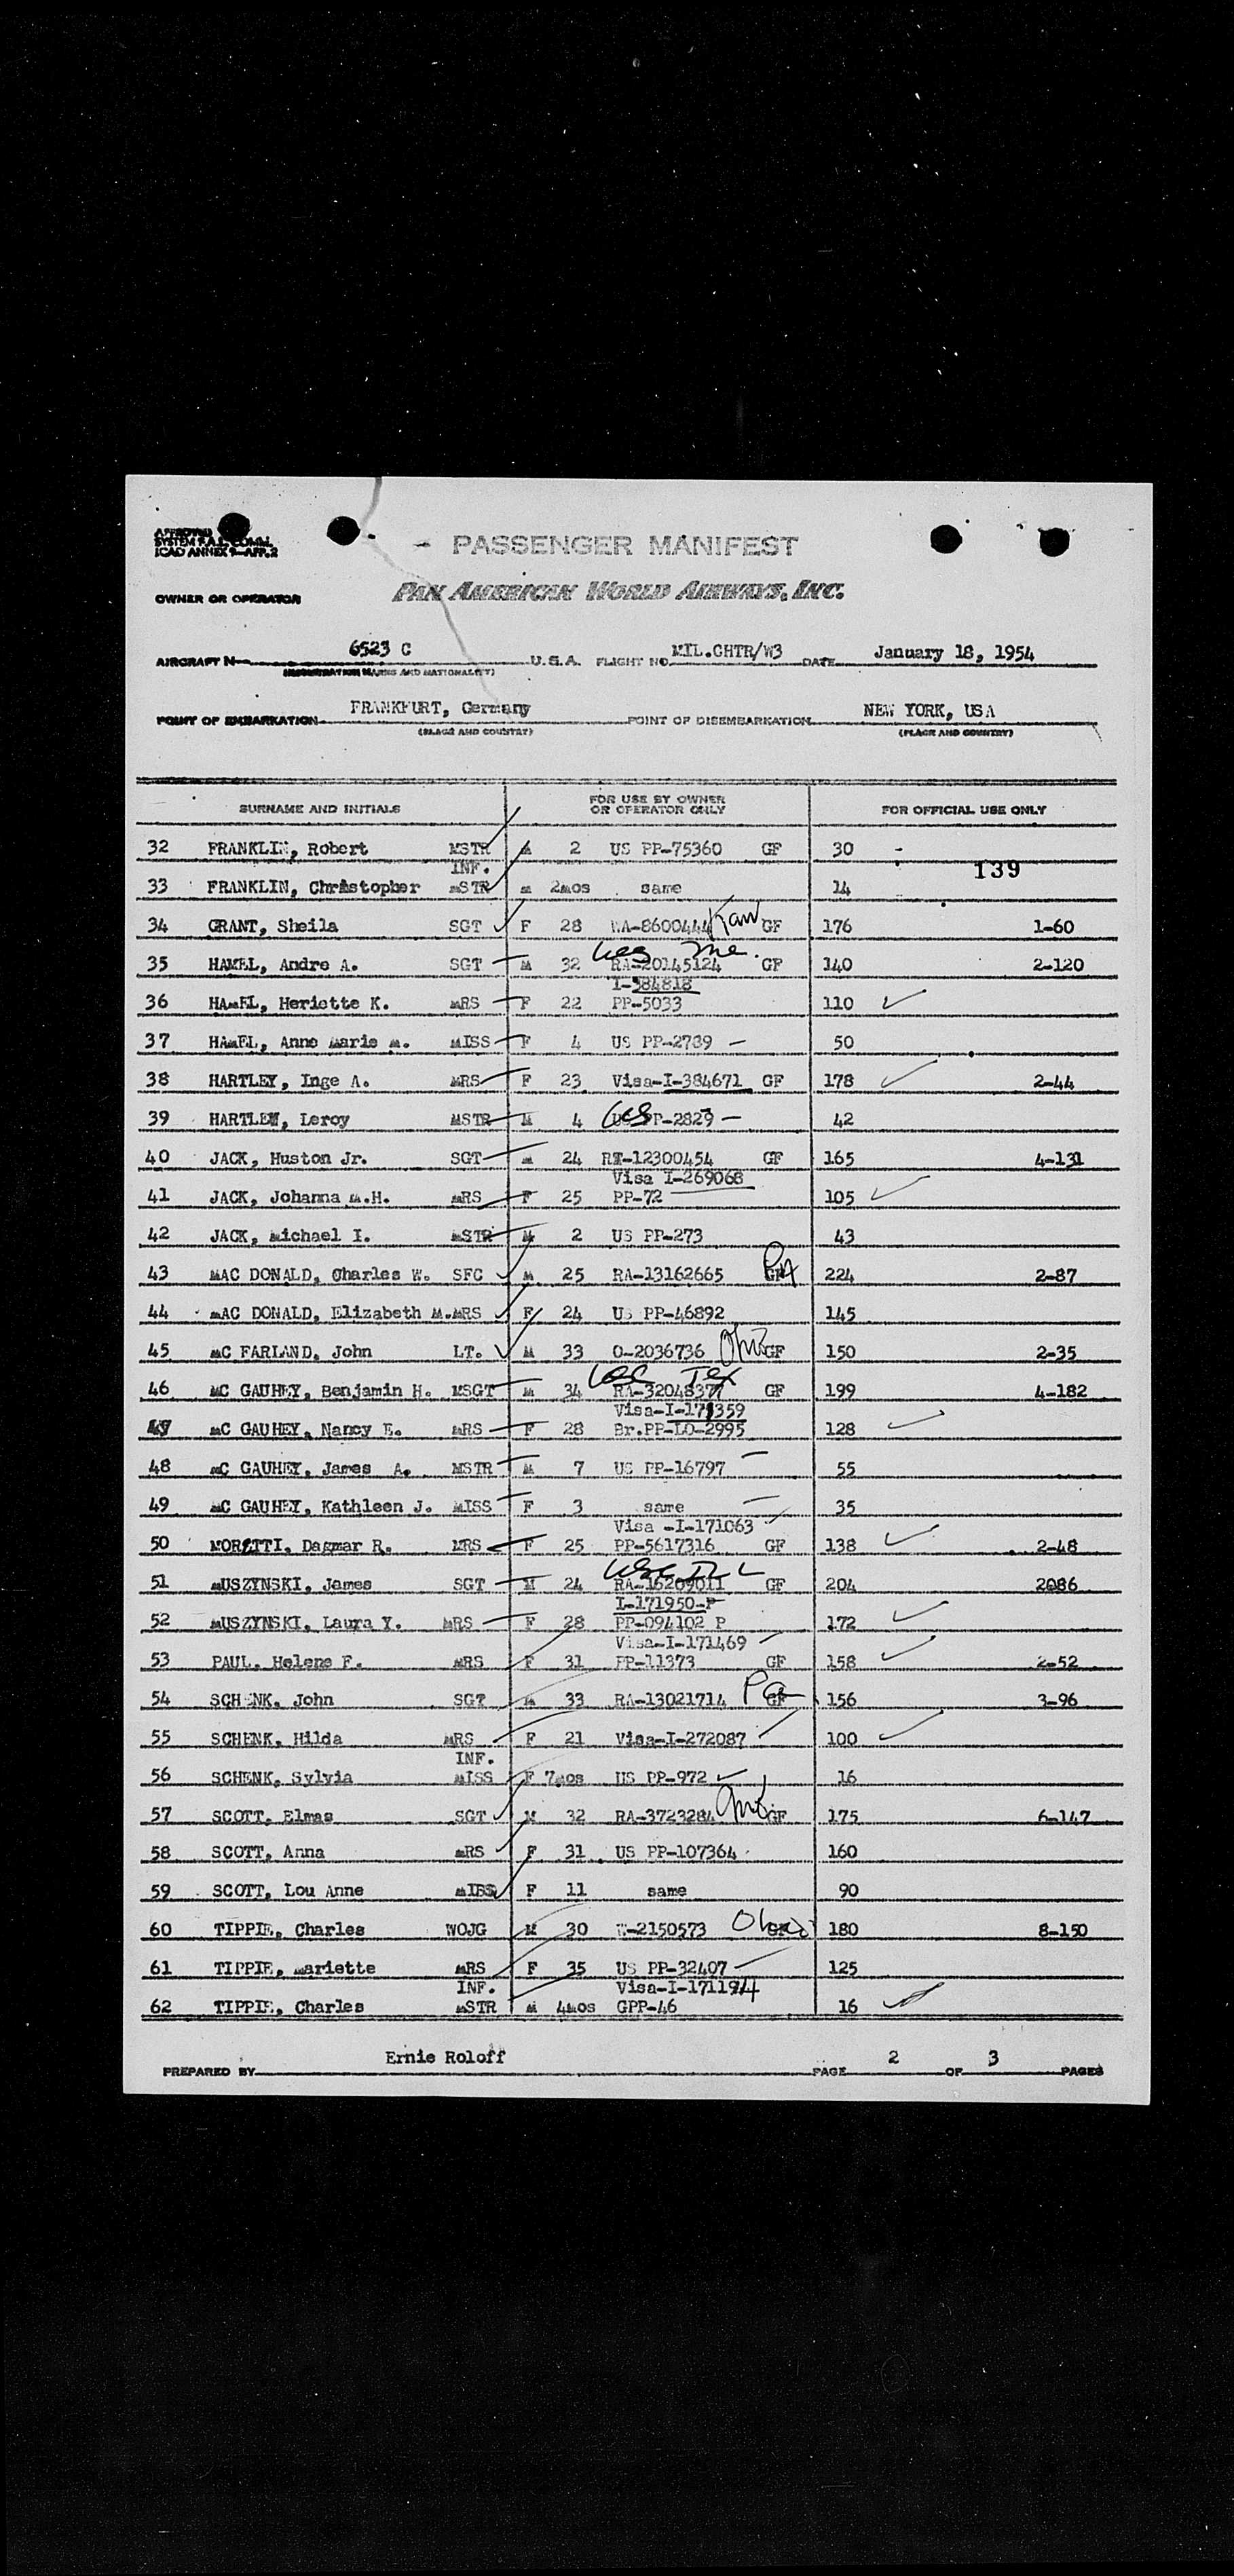 APPROVED
SYSTEM F.A.L. COMM.
ICAO ANNEX 9-APP. 2
- PASSENGER MANIFEST
OWNER OR OPERATOR PAN AMERICAN WORLD AIRWAYS, INC.
AIRCRAFT N 6523 C U.S.A. FLIGHT NO. MIL.CHTR/W3 DATE January 18, 1954
(REGISTRATION MARKS AND NATIONALITY)
POINT OF EMBARKATION FRANKFURT, Germany POINT OF DISEMBARKATION NEW YORK, USA
(PLACE AND COUNTRY) (PLACE AND COUNTRY)
SURNAME AND INITIALS FOR USE BY OWNER OR OPERATOR ONLY FOR OFFICIAL USE ONLY
32 FRANKLIN, Robert MSTR M 2 US PP-75360 GF 30 -
INF. 139
33 FRANKLIN, Christopher MSTR M 2mos same 14
34 GRANT, Sheila SGT F 28 WA-8600444 Kan GF 176 1-60
35 HAMEL, Andre A. SGT M 32 RA-20145124 Me. GF 140 2-120
I-384818
36 HAMEL, Heriette K. MRS F 22 PP-5033 110
37 HAMEL, Anne Marie M. MISS F 4 US PP-2789 50
38 HARTLEY, Inge A. MRS F 23 Visa-I-384671 GF 178 2-44
39 HARTLEY, Leroy MSTR M 4 US PP-2829 42
40 JACK, Huston Jr. SGT M 24 RT-12300454 GF 165 4-131
Visa I-269068
41 JACK, Johanna M.H. MRS F 25 PP-72 105
42 JACK, Michael I. MSTR M 2 US PP-273 43
43 MAC DONALD, Charles W. SFC M 25 RA-13162665 Pa GF 224 2-87
44 MAC DONALD, Elizabeth M. MRS F 24 US PP-46892 145
45 MC FARLAND, John LT. M 33 O-2036736 Ohio GF 150 2-35
46 MC GAUHEY, Benjamin H. MSGT M 34 RA-32048377 Tex GF 199 4-182
Visa-I-171359
47 MC GAUHEY, Nancy E. MRS F 28 Br.PP-LO-2995 128
48 MC GAUHEY, James A. MSTR M 7 US PP-16797 55
49 MC GAUHEY, Kathleen J. MISS F 3 same 35
Visa -I-171063
50 MORETTI, Dagmar R. MRS F 25 PP-5617316 GF 138 2-48
51 MUSZYNSKI, James SGT M 24 RA-16209011 Ill GF 204 2086
I-171950-P
52 MUSZYNSKI, Laura Y. MRS F 28 PP-094102 P 172
Visa-I-171469
53 PAUL, Helene F. MRS F 31 PP-11373 GF 158 2-52
54 SCHENK, John SGT M 33 RA-13021714 Pa GF 156 3-96
55 SCHENK, Hilda MRS F 21 Visa-I-272087 100
INF.
56 SCHENK, Sylvia MISS F 7mos US PP-972 16
57 SCOTT, Elmas SGT M 32 RA-3723284 GF 175 6-147
58 SCOTT, Anna MRS F 31 US PP-107364 160
59 SCOTT, Lou Anne MISS F 11 same 90
60 TIPPIE, Charles WOJG M 30 W-2150573 Ohio GF 180 8-150
61 TIPPIE, Mariette MRS F 35 US PP-32407 125
INF. Visa-I-171194
62 TIPPIE, Charles MSTR M 4mos GPP-46 16
PREPARED BY Ernie Roloff PAGE 2 OF 3 PAGES